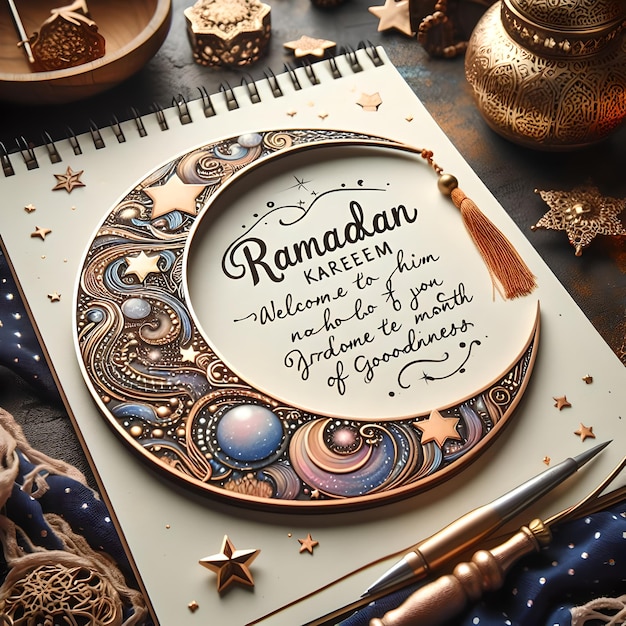 Ramadan
KAREEEM
Welcome to him
no ho ho f you
Jrdome te month
of Goodniness